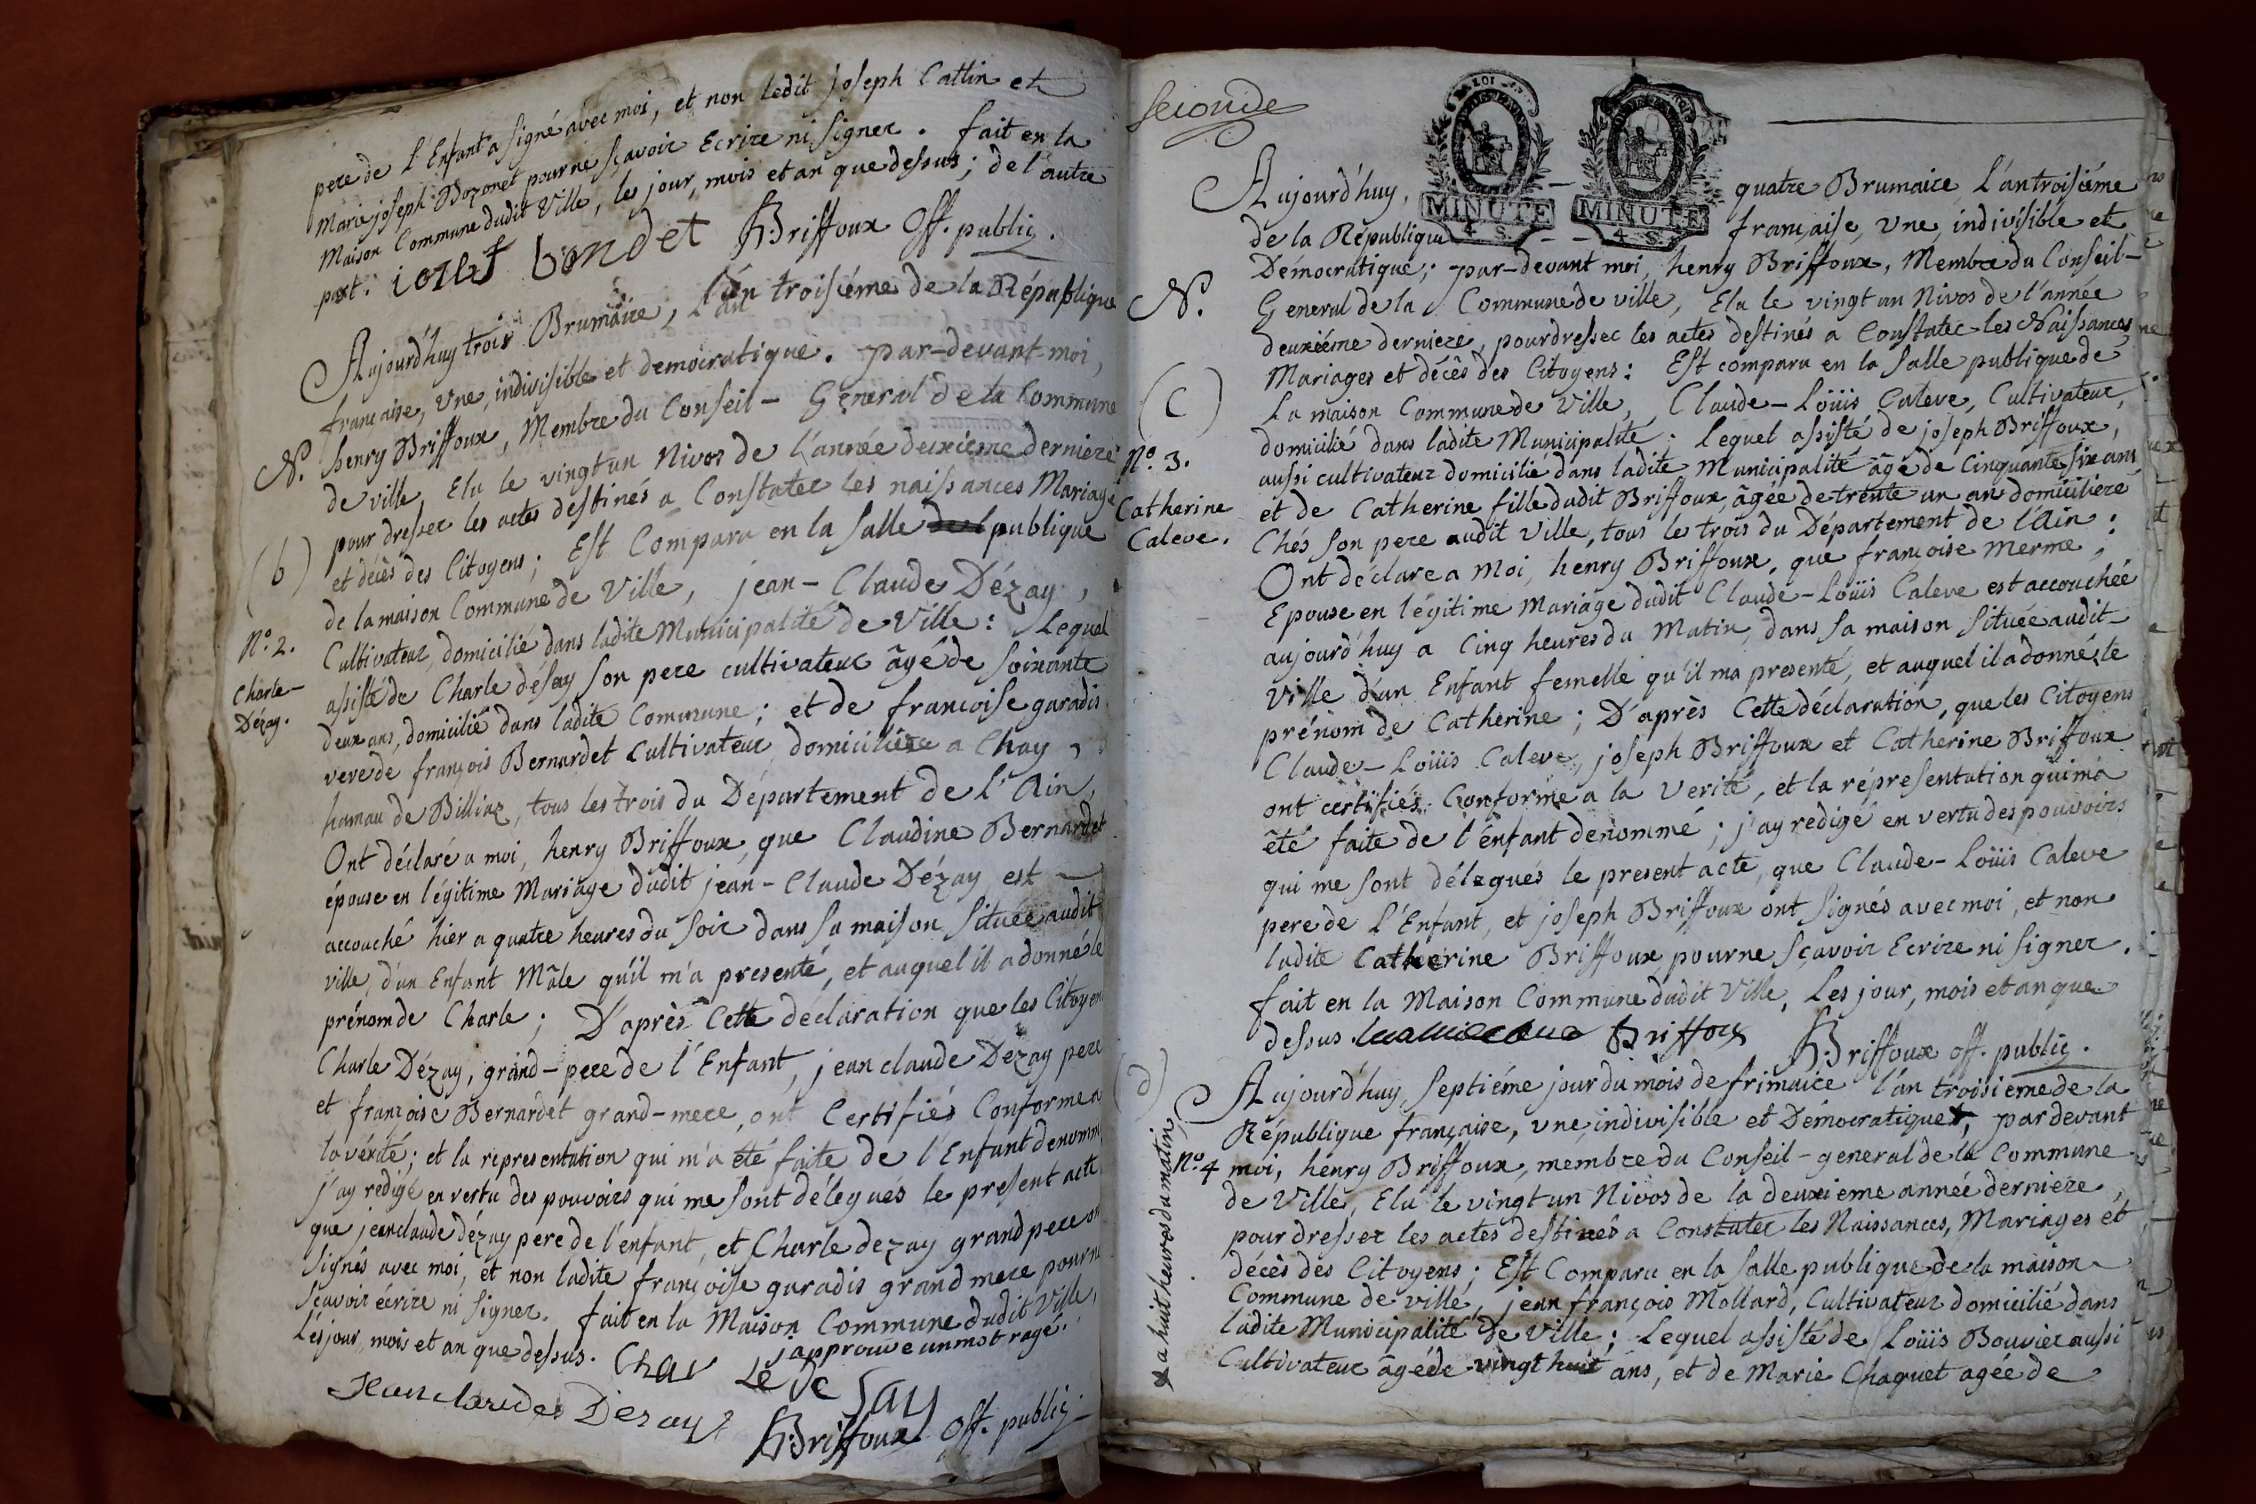 pere de l'Enfant a signé avec moi, et non ledit Joseph Cattin et
Marie joseph Bozonet pour ne sçavoir Ecrire ni signer. fait en la
Maison Commune dudit Ville, les jour, mois et an que dessus; de l'autre
part. bondet H. Briffoux Off. public.
Aujourd'huy trois Brumaire, l'an troisiéme de la République
française, Une, indivisible et democratique. par-devant moi,
N. henry Briffoux, Membre du Conseil-General de la Commune
de ville, Elu le vingt un Nivos de l'année deuxieme derniere
pour dresser les actes destinés a Constater les naissances Mariage
(b) et décès des Citoyens; Est Comparu en la salle publique
de la maison Commune de Ville, jean-Claude Dézay,
N.º 2. Cultivateur, domicilié dans ladite Municipalité de Ville: Lequel
Charle- assisté de Charle désay son pere cultivateur âgé de soixante
Dézay. deux ans, domicilié dans ladite Commune; et de francoise garadis
veve de françois Bernardet Cultivateur domiciliere a Chay,
hamau de Billiaz, tous les trois du Département de l'Ain,
Ont déclaré a moi, henry Briffoux, que Claudine Bernardet
épouse en légitime Mariage dudit jean-Claude Dézay est
accouché hier a quatre heures du soir dans sa maison située audit
ville, d'un Enfant Mâle qu'il m'a presenté, et auquel il a donné le
prénom de Charle; D'après Cette déclaration que les Citoyens
Charle Dézay, grand-pere de l'Enfant, jean claude Dezay pere
et françoise Bernardet grand-mere, ont Certifiés Conforme a
la vérité; et la representation qui m'a été faite de l'Enfant denommé
j'ay rédigé en vertu des pouvoirs qui me sont délegués le present acte
que jeanclaude dézay pere de l'enfant, et Charle dezay grand pere on
signés avec moi, et non ladite françoise garadis grand mere pour ne
sçavoir écrire ni signer. fait en la Maison Commune dudit Ville,
Les jour, mois et an que dessus. japprouve un mot rayé.
Char Le De Say
Jean claude Dezay
H. Briffoux Off. public.
seconde
LA LOI
MINUTE MINUTE
4 S. 4 S.
Aujourd'huy, quatre Brumaire L'an troisiéme
de la République française, Une, indivisible et
Démocratique; par-devant moi, henry Briffoux, Membre du Conseil-
N. General de la Commune de ville, Elu le vingt un Nivos de l'année
deuxiéme derniere, pour dresser les actes destinés a Constater les Naissances,
Mariages et décès des Citoyens: Est comparu en la salle publique de
(C) La maison Commune de Ville, Claude-Loüis Caleve, Cultivateur,
domicilié dans ladite Municipalité: Lequel assisté de joseph Briffoux,
N.º 3. aussi cultivateur domicilié dans ladite Municipalité âgé de Cinquante six ans
Catherine et de Catherine fille dudit Briffoux, âgée de trente un an domiciliere
Caleve. Chés son pere audit Ville, tous le trois du Département de l'Ain:
Ont déclare a Moi, henry Briffoux, que françoise Merme,
Epouse en légitime Mariage dudit Claude-Loüis Caleve est accouchée
aujourd'huy a Cinq heures du Matin, dans sa maison située audit
Ville d'un Enfant femelle qu'il ma presenté, et auquel il a donné, le
prénom de Catherine; D'après Cette déclaration, que les Citoyens
Claude-Loüis Caleve, joseph Briffoux et Catherine Briffoux
ont certifiés Conforme a la Verité, et la répresentation qui m'a
été faite de l'enfant denommé; j'ay rédigé en vertu des pouvoirs
qui me sont délegués le present acte, que Claude-Loüis Caleve
pere de l'Enfant, et joseph Briffoux ont signés avec moi, et non
ladite Catherine Briffoux pour ne sçavoir Ecrire ni signer.
fait en la Maison Commune dudit Ville, Les jour, mois et an que
dessus. Briffoux H. Briffoux off. public.
(d) Aujourd'huy, septiéme jour du mois de frimaire l'an troisieme de la
République française, une, indivisible et Démocratique, par devant
N.º 4 moi, henry Briffoux, membre du Conseil-general de la Commune
de Ville, Elu le vingt un Nivos de la deuxieme année derniere,
pour dresser les actes destinés a Constater les Naissances, Mariages et
décès des Citoyens; Est Comparu en la salle publique de la maison
Commune de ville, jean françois Mollard, Cultivateur domicilié dans
ladite Municipalité De Ville; Lequel assisté de Loüis Bouvier aussi
Cultivateur âgé de vingt huit ans, et de Marie Chaquet agée de
a huit heures du matin